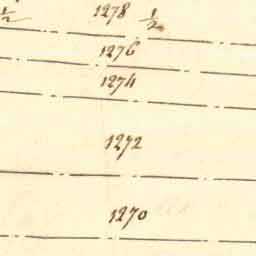 ½ 1278 ½
1276
1274
1272
1270